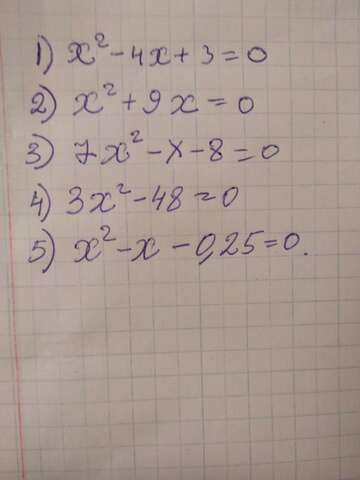 1) x² - 4x + 3 = 0
2) x² + 9x = 0
3) 7x² - x - 8 = 0
4) 3x² - 48 = 0
5) x² - x - 0,25 = 0.